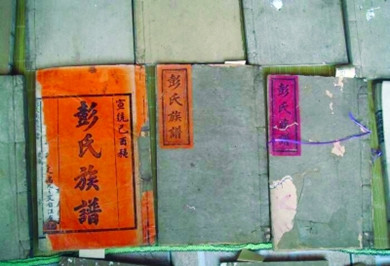 宣統己酉
彭氏族譜
彭氏族譜
彭氏族